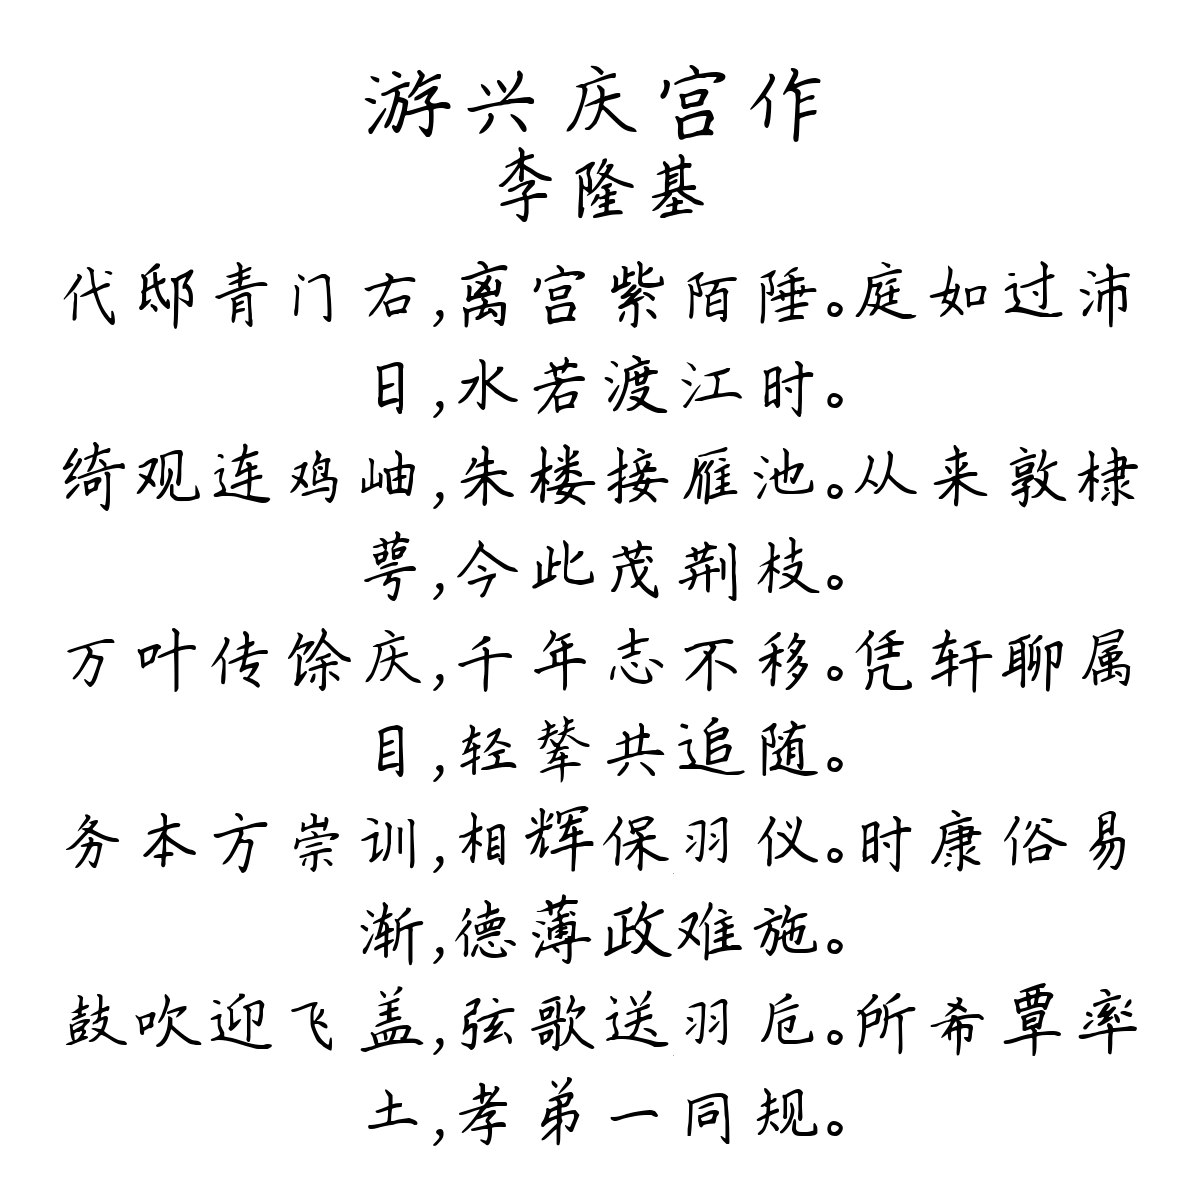 游兴庆宫作
李隆基
代邸青门右,离宫紫陌陲。庭如过沛
日,水若渡江时。
绮观连鸡岫,朱楼接雁池。从来敦棣
萼,今此茂荆枝。
万叶传馀庆,千年志不移。凭轩聊属
目,轻辇共追随。
务本方崇训,相辉保羽仪。时康俗易
渐,德薄政难施。
鼓吹迎飞盖,弦歌送羽卮。所希覃率
土,孝弟一同规。